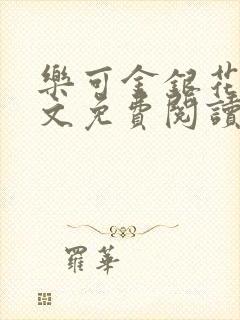 樂可金銀花
文免費閱讀
羅華